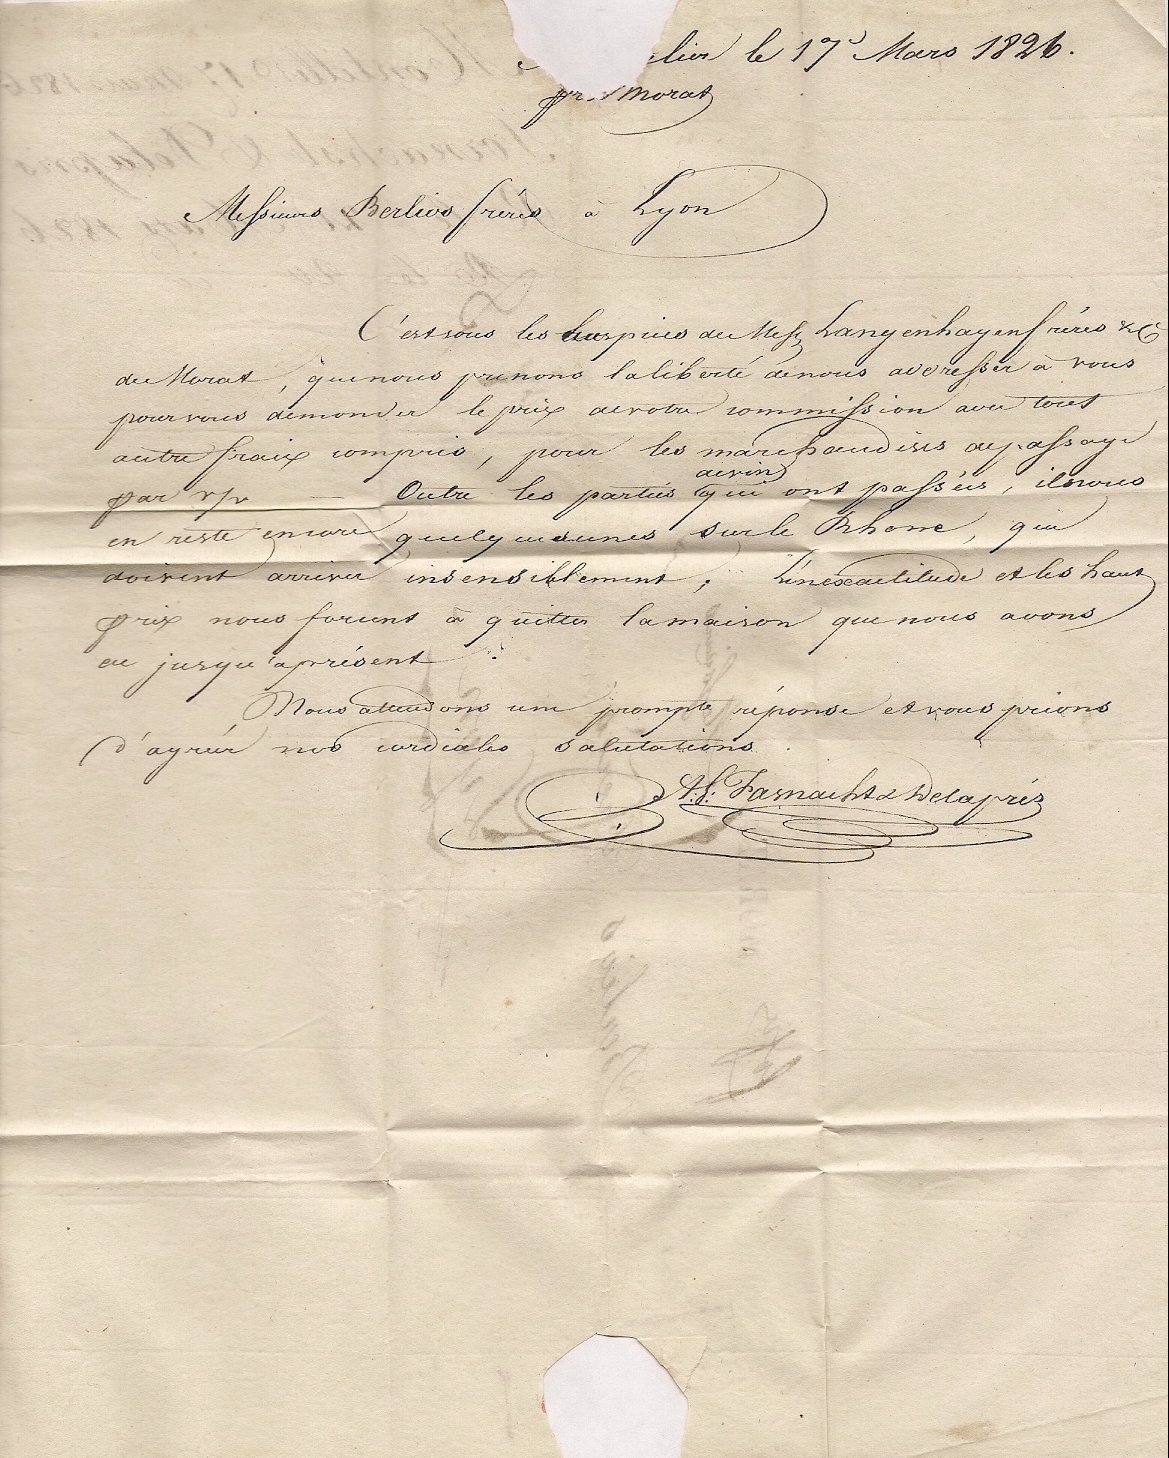 le 17 Mars 1826.
Morat
Messieurs Berlios frères à Lyon
C'est sous les huspices de Mess. Langenhagen frères & C
de Morat, que nous prenons la liberté de nous adresser à vous
pour vous demander le prix de votre commission avec tout
autre fraix compris, pour les marchandises de passage
de vin
par Outre les parties qui ont passées, il nous
en reste encore quelques unes sur le Rhone, qui
doivent arriver insensiblement; L'inéxactitude et les haut
prix nous forcent à quitter la maison que nous avons
eu jusqu'aprésent.
Nous attendons une prompte réponse et vous prions
d'agréér nos cordiales salutations.
Fasnacht & Delaprés